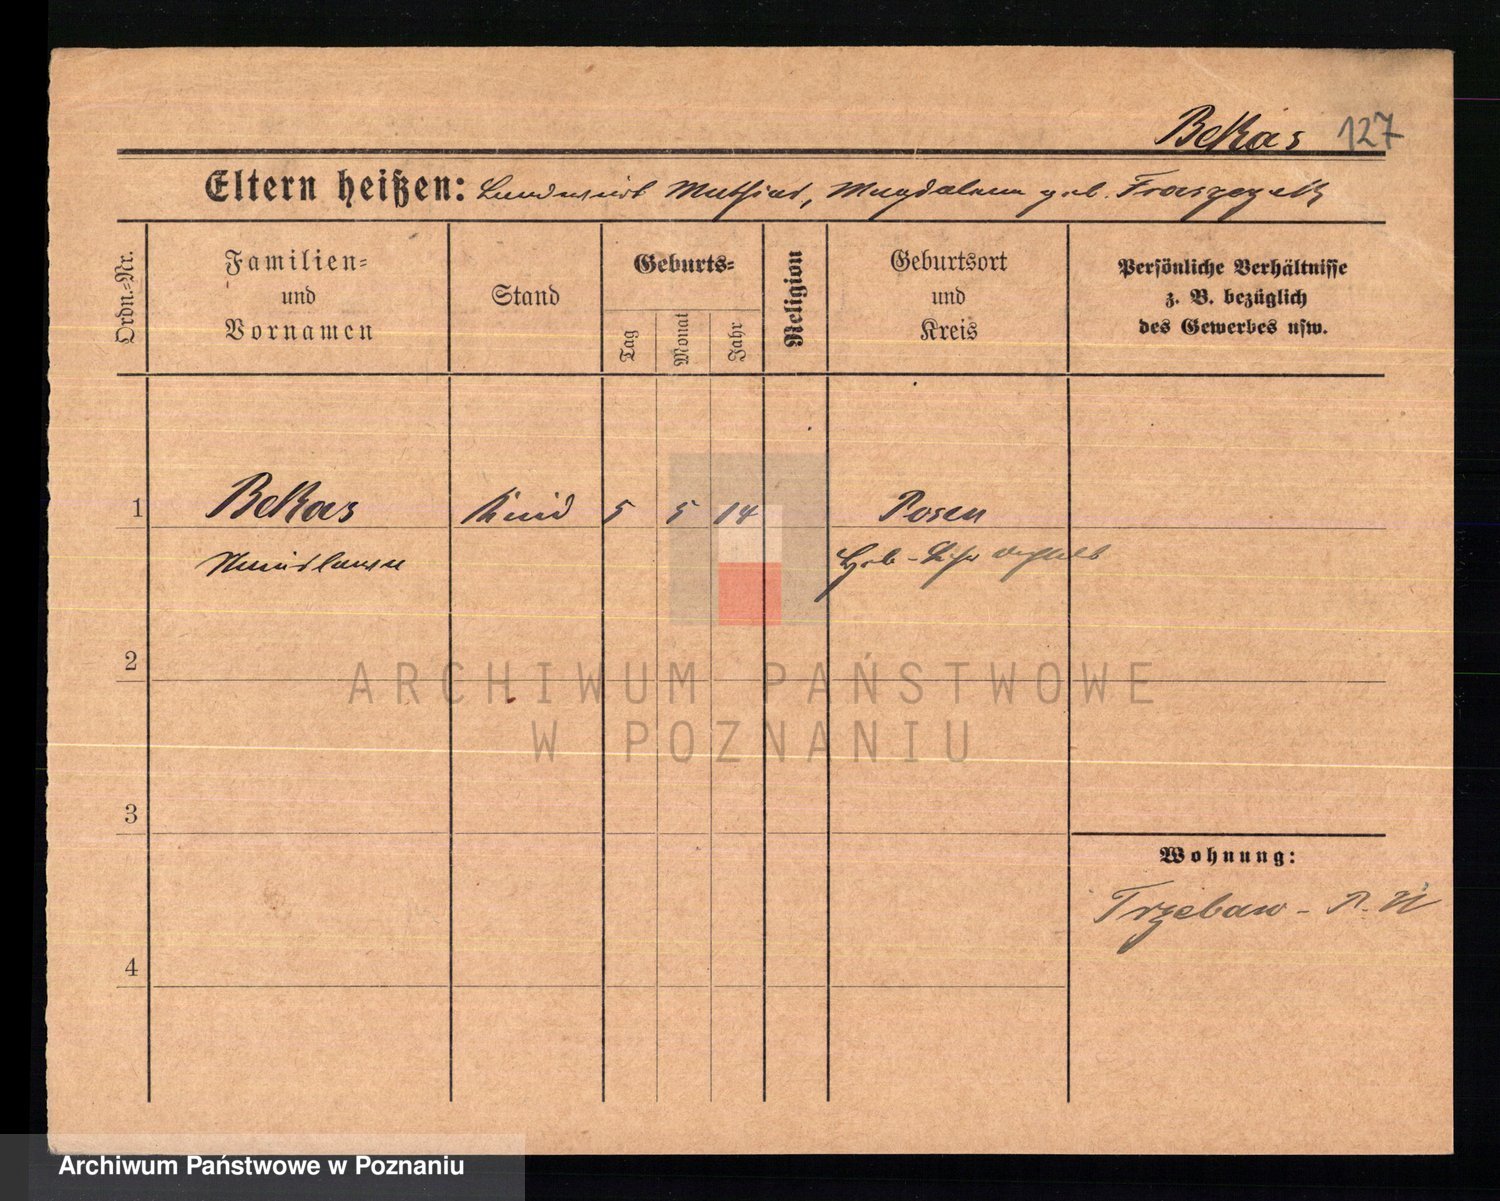 Bekas 127
Eltern heißen: Landwirt Mathias, Magdalena geb.
Ordn.-Nr.
Familien-
und
Vornamen
Stand
Geburts-
Tag
Monat
Jahr
Religion
Geburtsort
und
Kreis
Persönliche Verhältnisse
z. B. bezüglich
des Gewerbes usw.
1 Bekas Kind 5 5 14 Posen
2
ARCHIWUM PAŃSTWOWE
W POZNANIU
3
Wohnung:
Trzebaw -
4
Archiwum Państwowe w Poznaniu